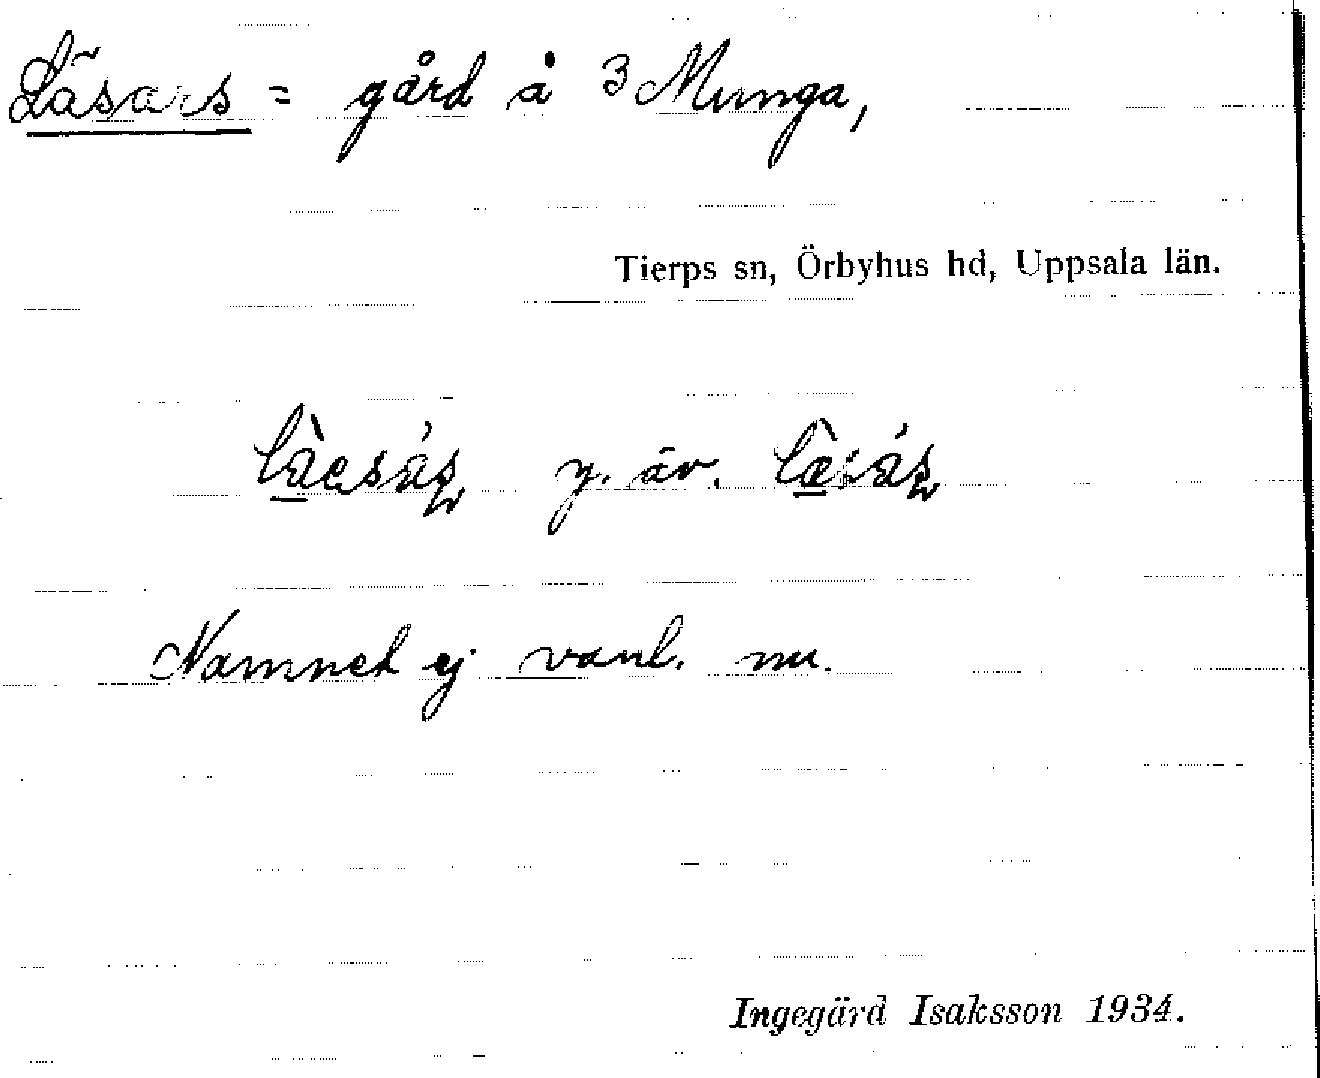 Läsars = gård å 3 Munga,
Tierps sn, Örbyhus hd, Uppsala län.
y. äv.
Namnet ej vanl. nu.
Ingegärd Isaksson 1934.